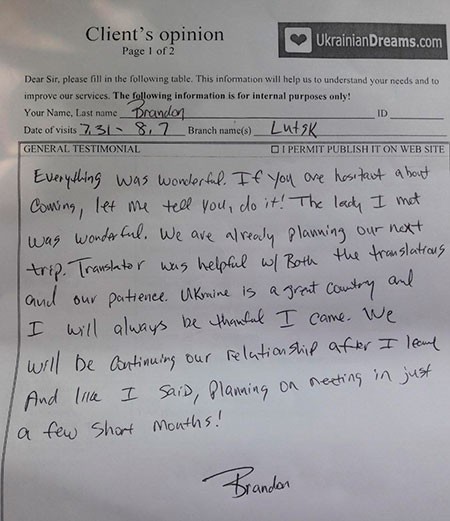 Client's opinion
Page 1 of 2
UkrainianDreams.com
Dear Sir, please fill in the following table. This information will help us to understand your needs and to
improve our services. The following information is for internal purposes only!
Your Name, Last name Brandon ID
Date of visits 7.31 - 8.7 Branch name(s) Lutsk
GENERAL TESTIMONIAL ☐ I PERMIT PUBLISH IT ON WEB SITE
Everything was wonderful. If you are hesitant about
coming, let me tell you, do it! The lady I met
was wonderful. We are already planning our next
trip. Translator was helpful w/ Both the translations
and our patience. Ukraine is a great country and
I will always be thankful I came. We
will be continuing our relationship after I leave
And like I said, planning on meeting in just
a few short months!
Brandon